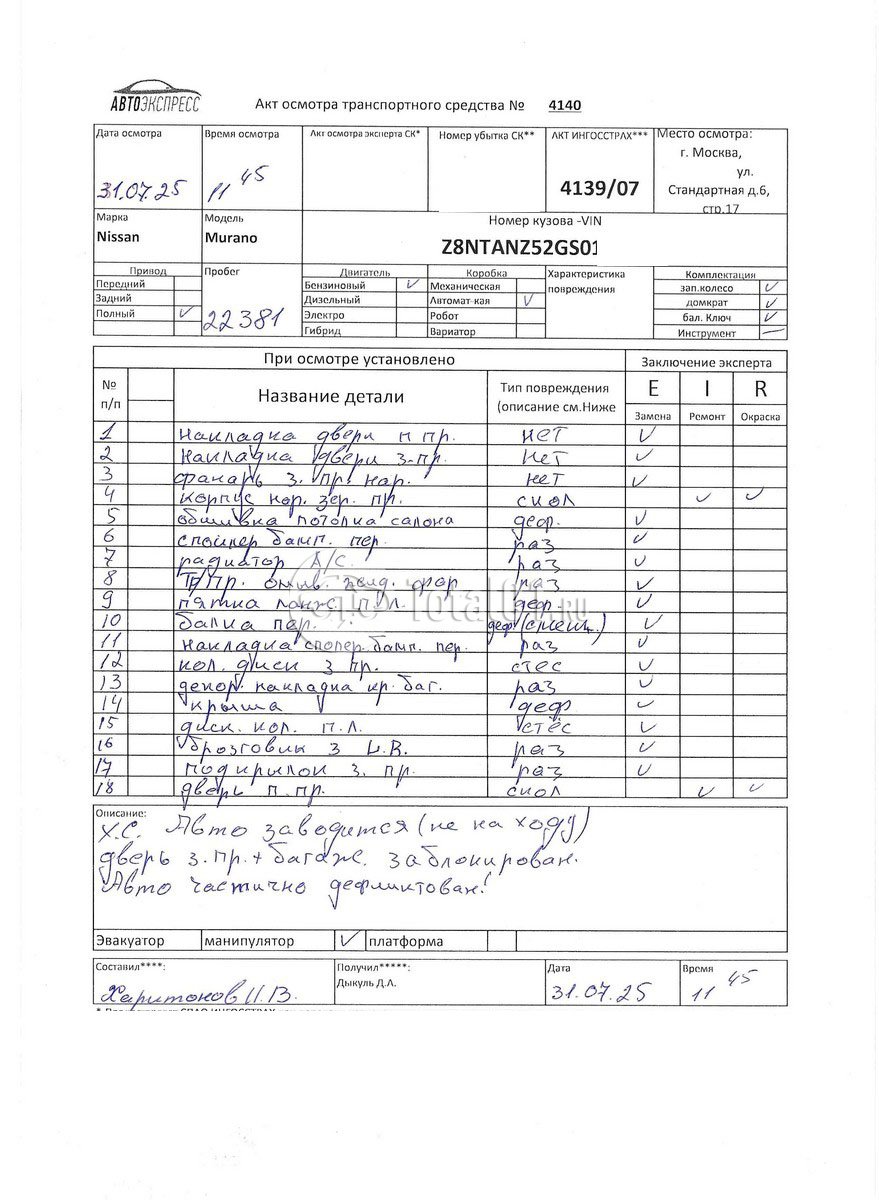 АВТОЭКСПРЕСС
Акт осмотра транспортного средства № 4140
Дата осмотра Время осмотра Акт осмотра эксперта СК* Номер убытка СК** АКТ ИНГОССТРАХ*** Место осмотра:
г. Москва,
ул.
31.07.25 11 45 4139/07 Стандартная д.6,
стр.17
Марка Модель Номер кузова -VIN
Nissan Murano Z8NTANZ52GS01
Привод Пробег Двигатель Коробка Характеристика Комплектация
Передний Бензиновый ✓ Механическая повреждения зап.колесо ✓
Задний Дизельный Автомат-кая ✓ домкрат ✓
Полный ✓ 22381 Электро Робот бал. Ключ ✓
Гибрид Вариатор Инструмент —
При осмотре установлено Заключение эксперта
№ п/п Название детали Тип повреждения (описание см.Ниже E I R
Замена Ремонт Окраска
1 накладка двери п пр. нет ✓
2 накладка двери з-пр. нет ✓
3 фонарь з. пр. нар. нет ✓
4 корпус нар. зер. пр. скол ✓ ✓
5 обшивка потолка салона деф. ✓
6 спойлер бамп. пер. раз ✓
7 радиатор A/C. раз ✓
8 омыв. жид. фар раз ✓
9 пятна лонж. п.л. деф. ✓
10 балка пер. деф (смещ.) ✓
11 накладка спойлер. бамп. пер. раз ✓
12 кол. диск з пр. стес ✓
13 декор. накладка кр. баг. раз ✓
14 крыша деф ✓
15 диск. кол. п.л. стёс ✓
16 брозговик з L.R. раз ✓
17 подкрылок з. пр. раз ✓
18 дверь п.пр. скол ✓ ✓
Описание:
Х.С. Авто заводится (не на ходу)
дверь з.пр.+ багаж. заблокирован.
Авто частично дефлинтован!
Эвакуатор манипулятор ✓ платформа
Составил****: Получил*****: Дата Время
Харитонов И.В. Дыкуль Д.А. 31.07.25 11 45
TotalO1.RU